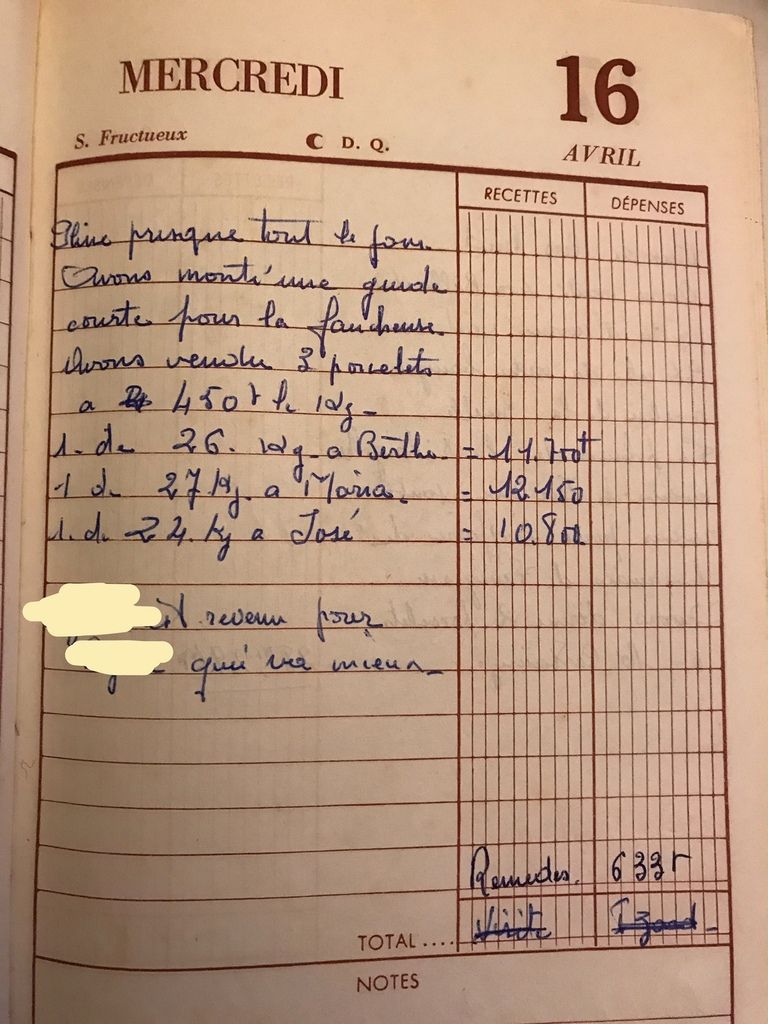 MERCREDI 16
S. Fructueux ☾ D. Q. AVRIL
RECETTES DÉPENSES
Pluie presque tout le jour.
Avons monté une guide
courte pour la faucheuse
Avons vendu 3 porcelets
a 450f le Kg-
1. de 26. Kg a Berthe = 11.700f
1 de 27 Kg a Maria. = 12.150
1. de 24. Kg a José = 10.800
est revenu pour
qui va mieux-
Remedes. 633f
TOTAL .... Visite Izard-
NOTES